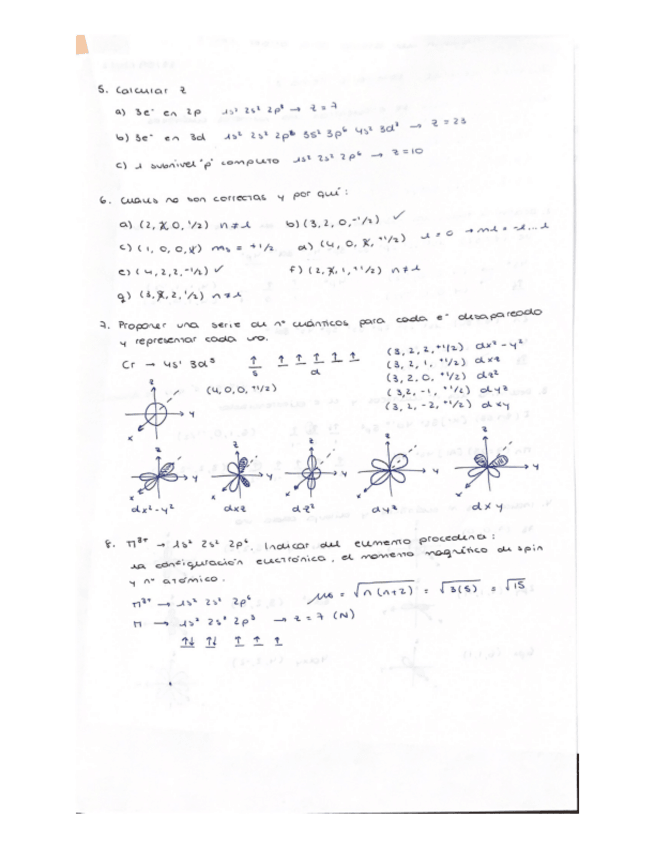 5. Calcular Z
a) 3e⁻ en 2p 1s² 2s² 2p³ → Z = 7
b) 3e⁻ en 3d 1s² 2s² 2p⁶ 3s² 3p⁶ 4s² 3d³ → Z = 23
c) 1 subnivel "p" completo 1s² 2s² 2p⁶ → Z = 10
6. Cuáles no son correctas y por qué:
a) (2, 2, 0, 1/2) n ≠ l b) (3, 2, 0, -1/2) ✓
c) (1, 0, 0, ) ms = +1/2 d) (4, 0, , +1/2) l = 0 → ml = -l...l
e) (4, 2, 2, -1/2) ✓ f) (2, 2, 1, +1/2) n ≠ l
g) (3, 3, 2, 1/2) n ≠ l
7. Proponer una serie de nº cuánticos para cada e⁻ desapareado
y representar cada uno.
Cr → 4s¹ 3d⁵ ↑ ↑ ↑ ↑ ↑ ↑
s d
(3, 2, 2, +1/2) dx²-y²
(3, 2, 1, +1/2) dxz
(3, 2, 0, +1/2) dz²
(3, 2, -1, +1/2) dyz
(3, 2, -2, +1/2) dxy
z (4, 0, 0, +1/2)
y
x
z z z z z
y y y y y
x x x x x
dx²-y² dxz dz² dyz dxy
8. M³⁻ → 1s² 2s² 2p⁶. Indicar del elemento procedencia:
la configuración electrónica, el momento magnético de spin
y nº atómico.
M³⁻ → 1s² 2s² 2p⁶ μs = √n(n+2) = √3(5) = √15
M → 1s² 2s² 2p³ → Z = 7 (N)
↑↓ ↑↓ ↑ ↑ ↑